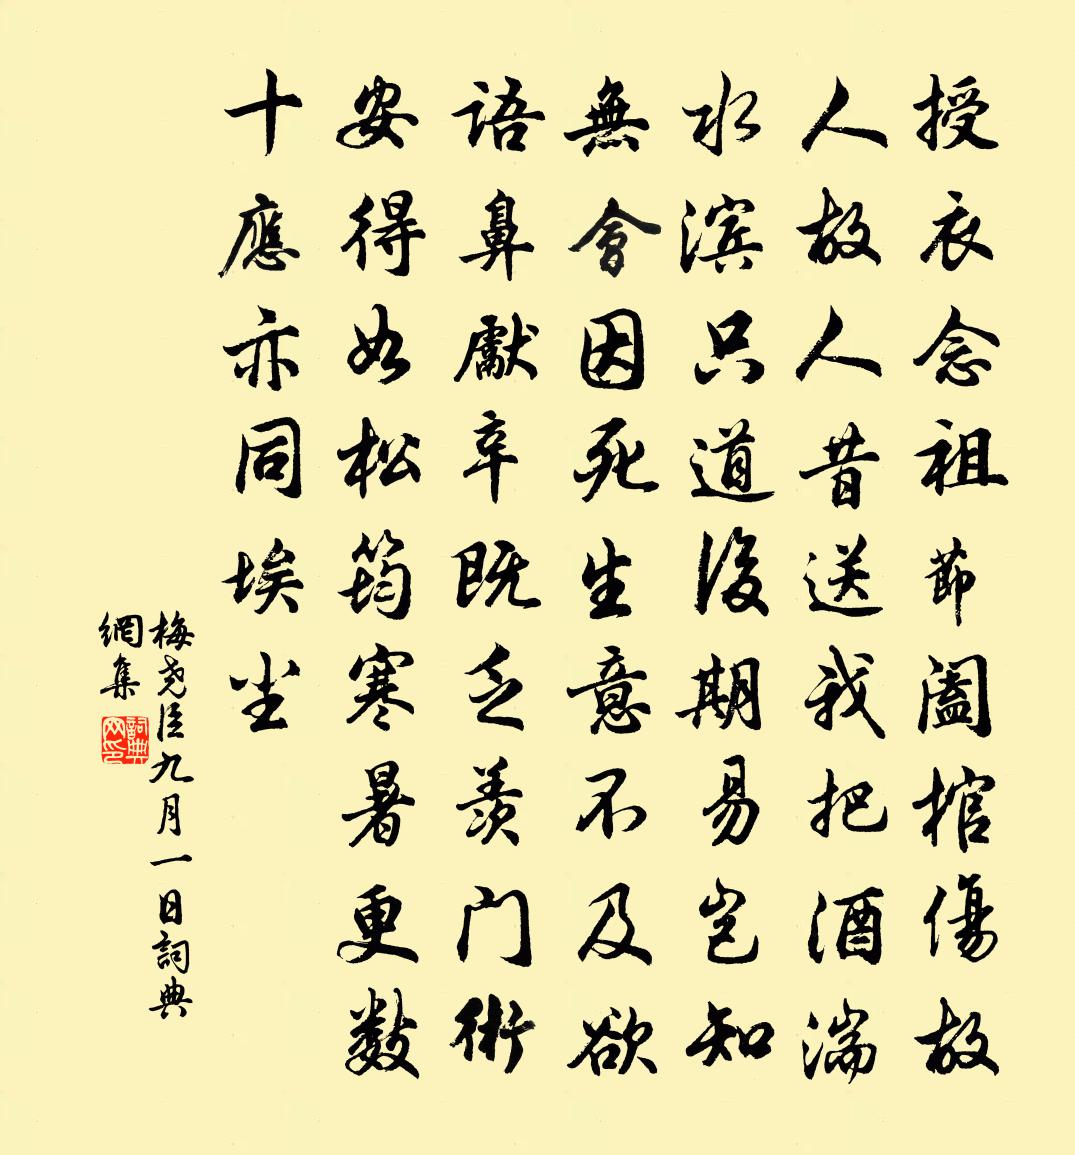 授衣念祖節闔棺傷故
人故人昔送我把酒湍
水滨只道後期易岂知
無會因死生意不及欲
語鼻獻辛既乏羨门術
安得如松筠寒暑更數
十應亦同埃尘
梅尧臣九月一日詞典
網集
詞典网印